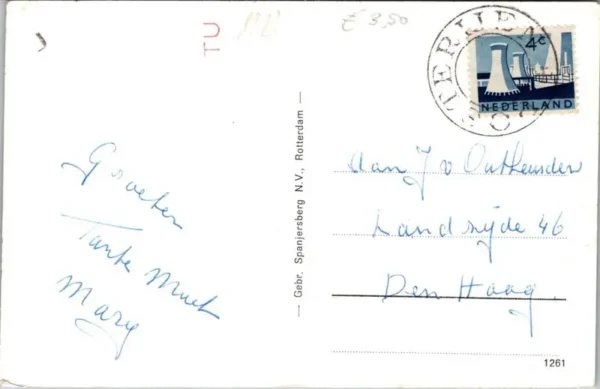 TU
€ 3,50
4c
NEDERLAND
Groeten
Tante
Mary
— Gebr. Spanjersberg N.V., Rotterdam —
Aan J v Outheusden
Landzijde 46
Den Haag.
1261